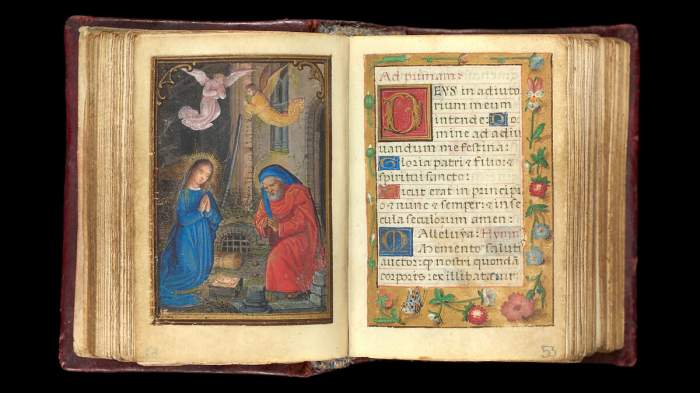 Ad primam:
DEUS in adiuto
rium meum
intende: Do
mine ad adiu
uandum me festina:
Gloria patri & filio: &
spiritui sancto:
Sicut erat in principi
o & nunc & semper: & in se
cula seculorum amen:
Alleluya: Hymn
Memento saluti
auctor: q nostri quondā
corporis: ex illibata uir
53